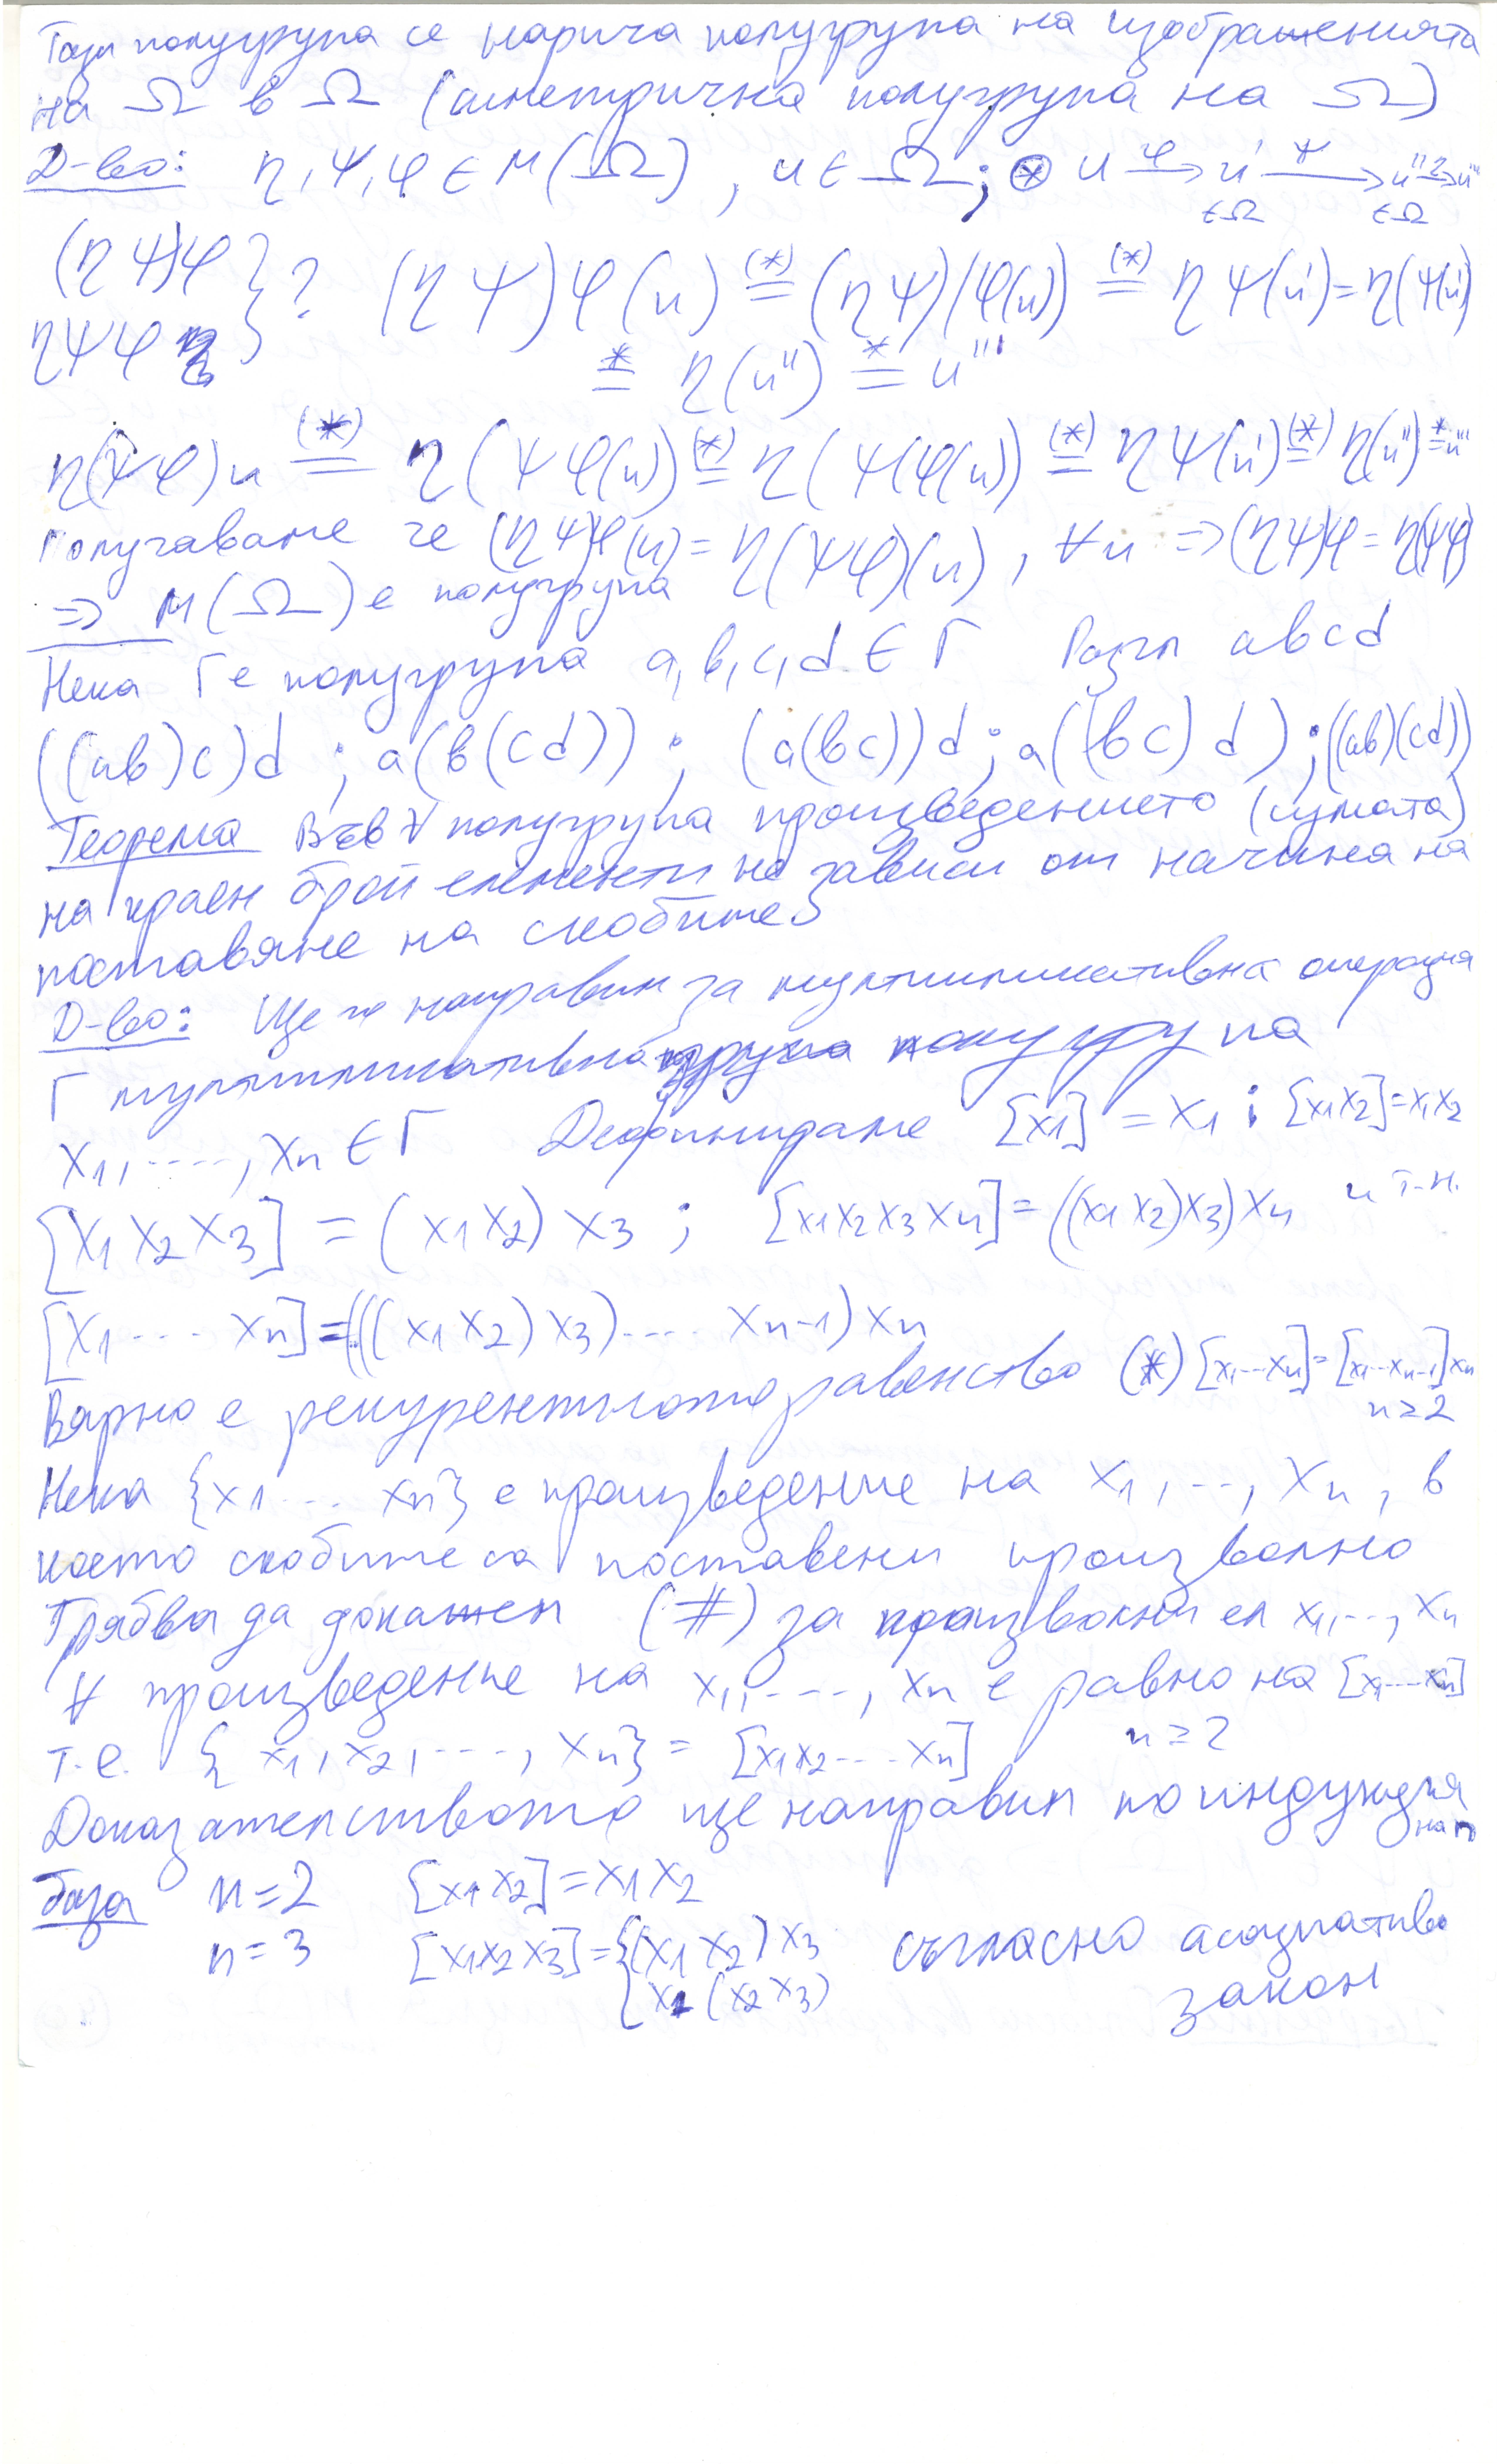 Тази полугрупа се нарича полугрупа на изображенията
на Ω в Ω (симетрична полугрупа на Ω)
Д-во: η, ψ, φ ∈ M(Ω), u ∈ Ω; ⊛ u —φ→ u' —ψ→ u'' —η→ u'''
∈Ω ∈Ω
(ηψ)φ } ? (ηψ)φ(u) (*)= (ηψ)(φ(u)) (*)= ηψ(u') = η(ψ(u')
ηψφ *= η(u'') *= u'''
η(ψφ)u (*)= η(ψφ(u)) (*)= η(ψ(φ(u)) (*)= ηψ(u') (*)= η(u'') *= u'''
Получаваме че (ηψ)φ(u) = η(ψφ)(u), ∀u ⇒ (ηψ)φ = η(ψφ)
⇒ M(Ω) е полугрупа
Нека Γ е полугрупа a, b, c, d ∈ Γ Разгл abcd
((ab)c)d ; a(b(cd)) ; (a(bc))d ; a((bc)d) ; ((ab)(cd))
Теорема Във ∀ полугрупа произведението (сумата)
на краен брой елементи не зависи от начина на
поставяне на скобите
Д-во: Ще го направим за мултипликативна операция
Γ мултипликативна полугрупа
x1, ...., xn ∈ Γ Дефинираме [x1] = x1 ; [x1x2] = x1x2
[x1x2x3] = (x1x2)x3 ; [x1x2x3x4] = ((x1x2)x3)x4 и т.н.
[x1 .... xn] = (((x1x2)x3).... xn-1)xn
Вярно е рекурентното равенство (*) [x1...xn] = [x1...xn-1]xn
n ≥ 2
Нека {x1 ... xn} е произведение на x1, .., xn, в
което скобите са поставени произволно
Трябва да докажем (#) за произволни ел x1, .., xn
∀ произведение на x1, ...., xn е равно на [x1...xn]
т.е. { x1, x2, ..., xn} = [x1x2...xn] n ≥ 2
Доказателството ще направим по индукция
на n
база n = 2 [x1x2] = x1x2
n = 3 [x1x2x3] = { (x1x2)x3 съгласно асоциативо
x1(x2x3) закон